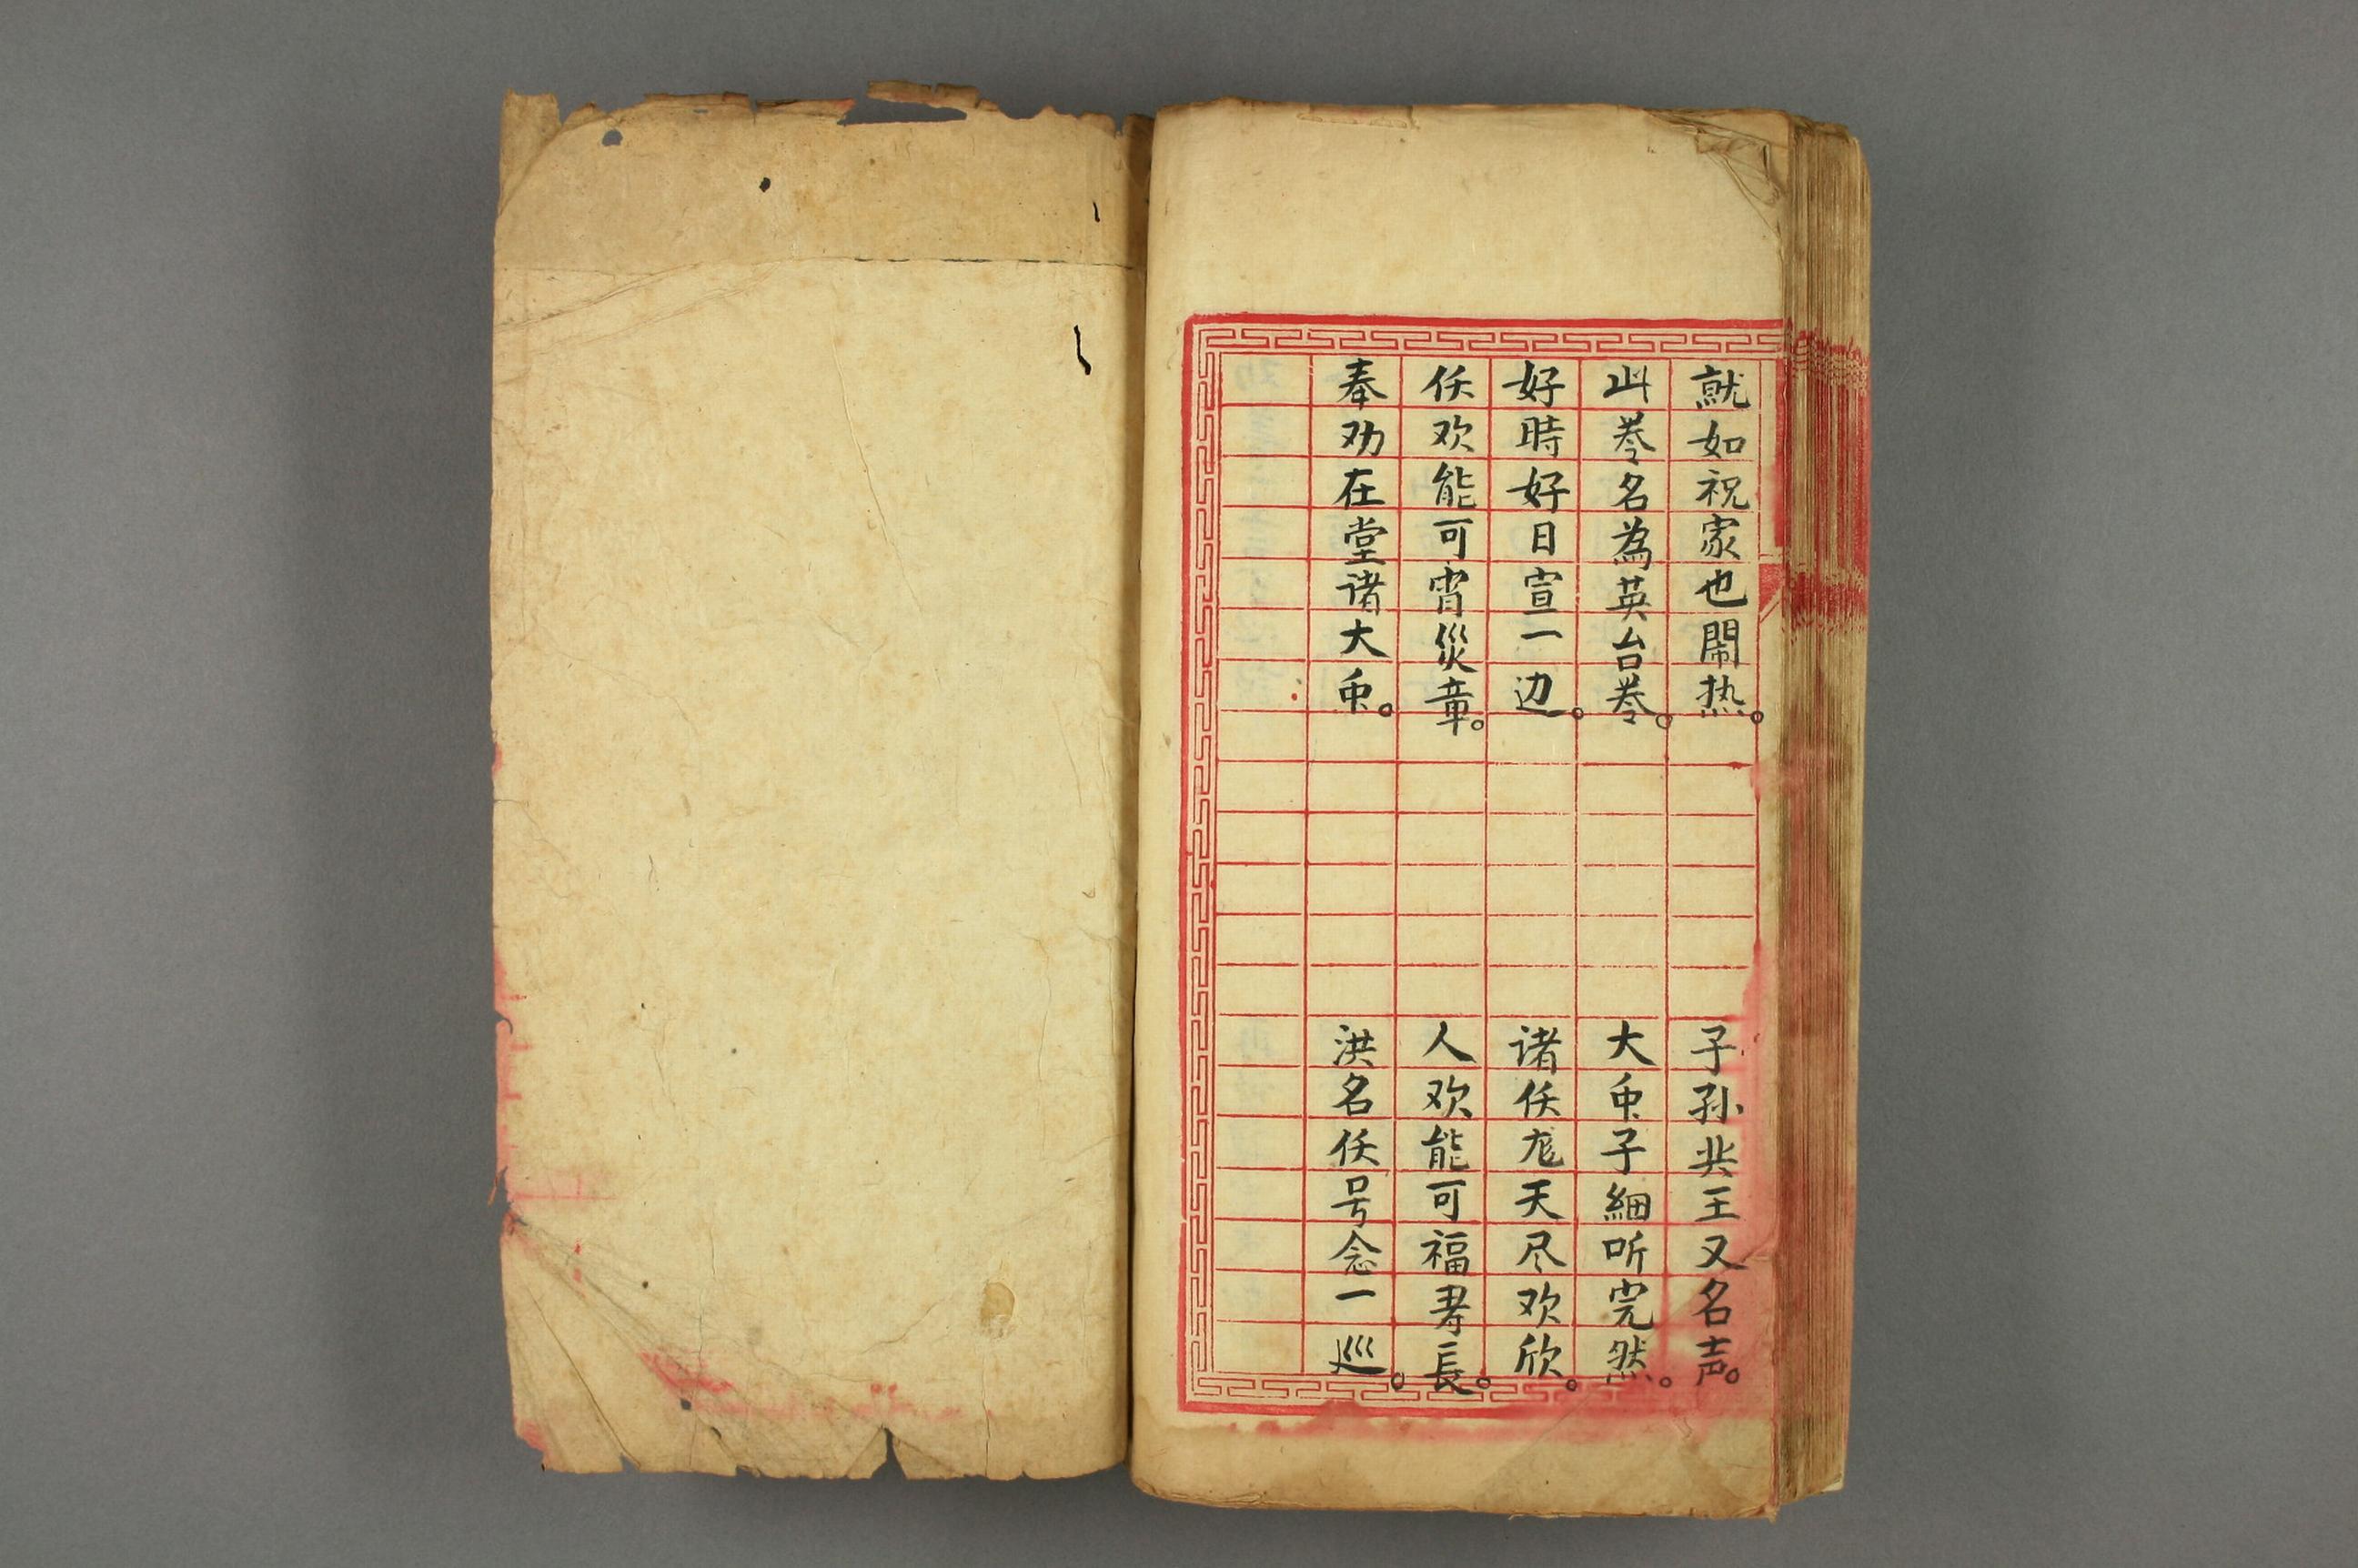 就如祝家也閙热。子孙共王又名声。
此卷名為英台卷。大众子細听完然。
好時好日宣一边。诸佛龙天尽欢欣。
佛欢能可宵災章。人欢能可福寿長。
奉劝在堂诸大众。洪名佛号念一巡。